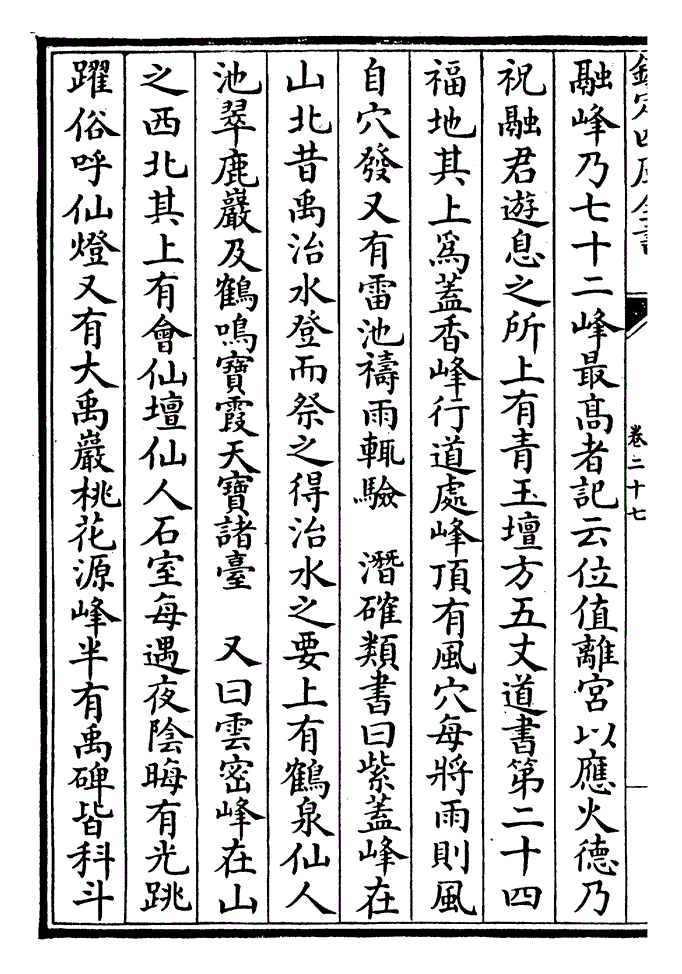 欽定四庫全書
卷二十七
融峰乃七十二峰最髙者記云位值離宮以應火德乃
祝融君遊息之所上有青玉壇方五丈道書第二十四
福地其上爲蓋香峰行道處峰頂有風穴每將雨則風
自穴發又有雷池禱雨輒驗　潛確類書曰紫蓋峰在
山北昔禹治水登而祭之得治水之要上有鶴泉仙人
池翠鹿巖及鶴鳴寶霞天寶諸臺　又曰雲密峰在山
之西北其上有會仙壇仙人石室每遇夜陰晦有光跳
躍俗呼仙燈又有大禹巖桃花源峰半有禹碑皆科斗